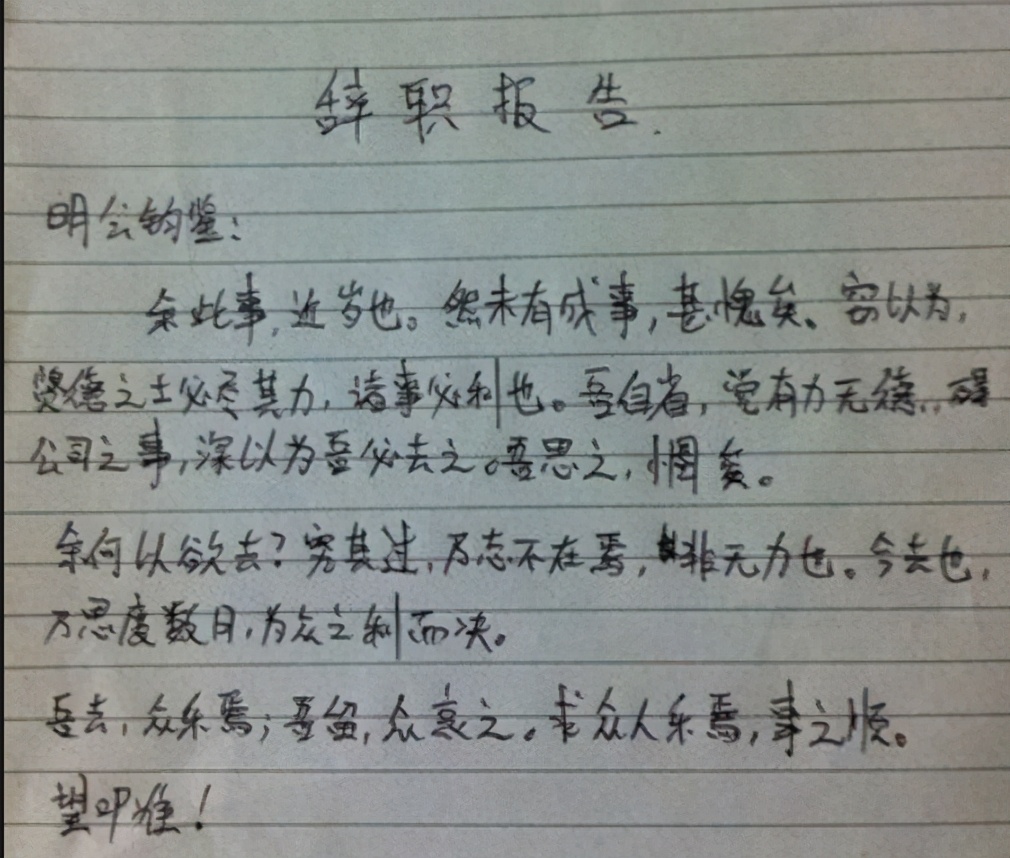 辞职报告.
明公钧鉴:
余此事,近岁也。然未有成事,甚愧矣。窃以为,
贤德之士必尽其力,诸事必利也。吾自省,觉有力无德,碍
公司之事,深以为吾必去之。吾思之,惘矣。
余何以欲去?究其过,乃志不在焉,非无力也。今去也,
乃思度数日,为众之利而决。
吾去,众乐焉;吾留,众哀之。求众人乐焉,事之顺。
望叩准!